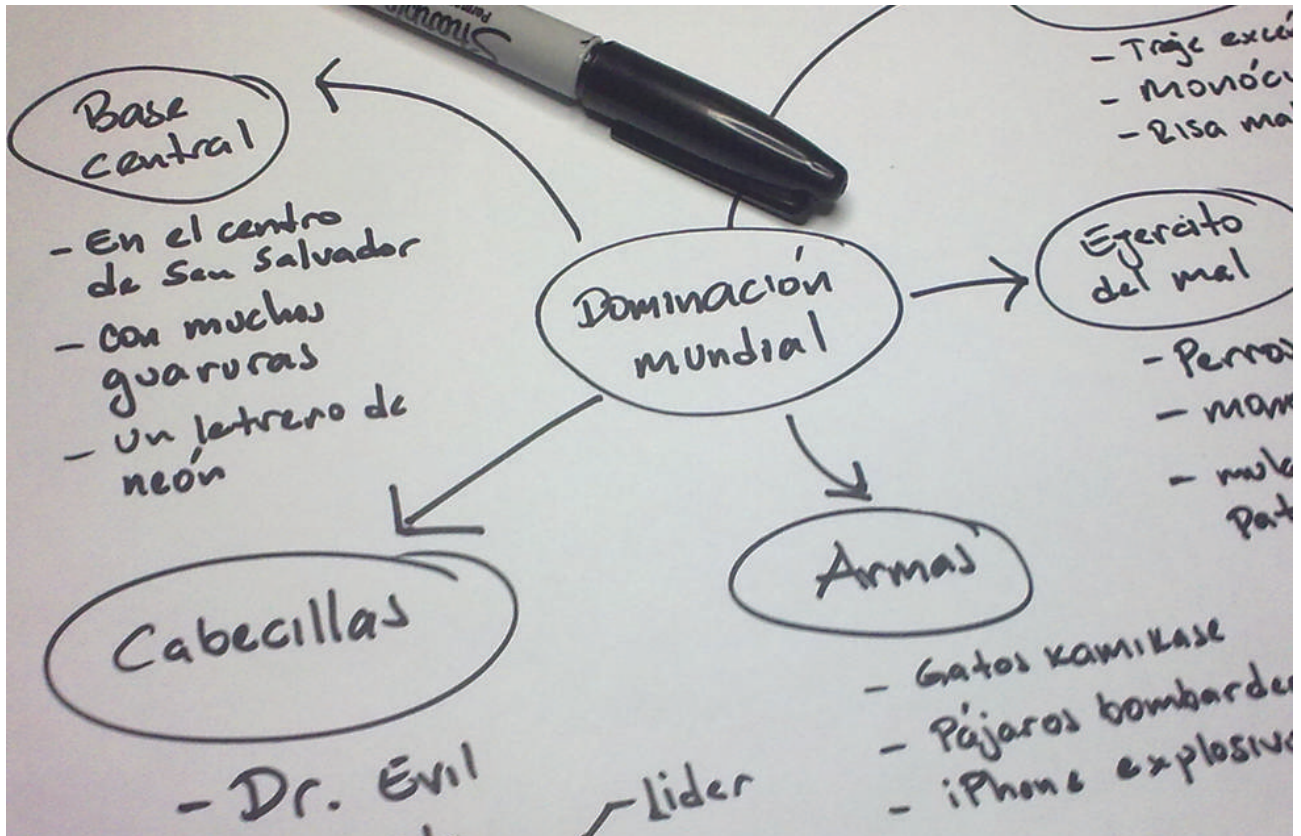 Sharpie
Base
central
- En el centro
de San Salvador
- con muchos
guaruras
- un letrero de
neón
Dominación
mundial
- Traje
-
- Risa
Ejercito
del mal
- Perros
-
-
Armas
- Gatos kamikase
- Pájaros
- iPhone
Cabecillas
- Dr. Evil
lider